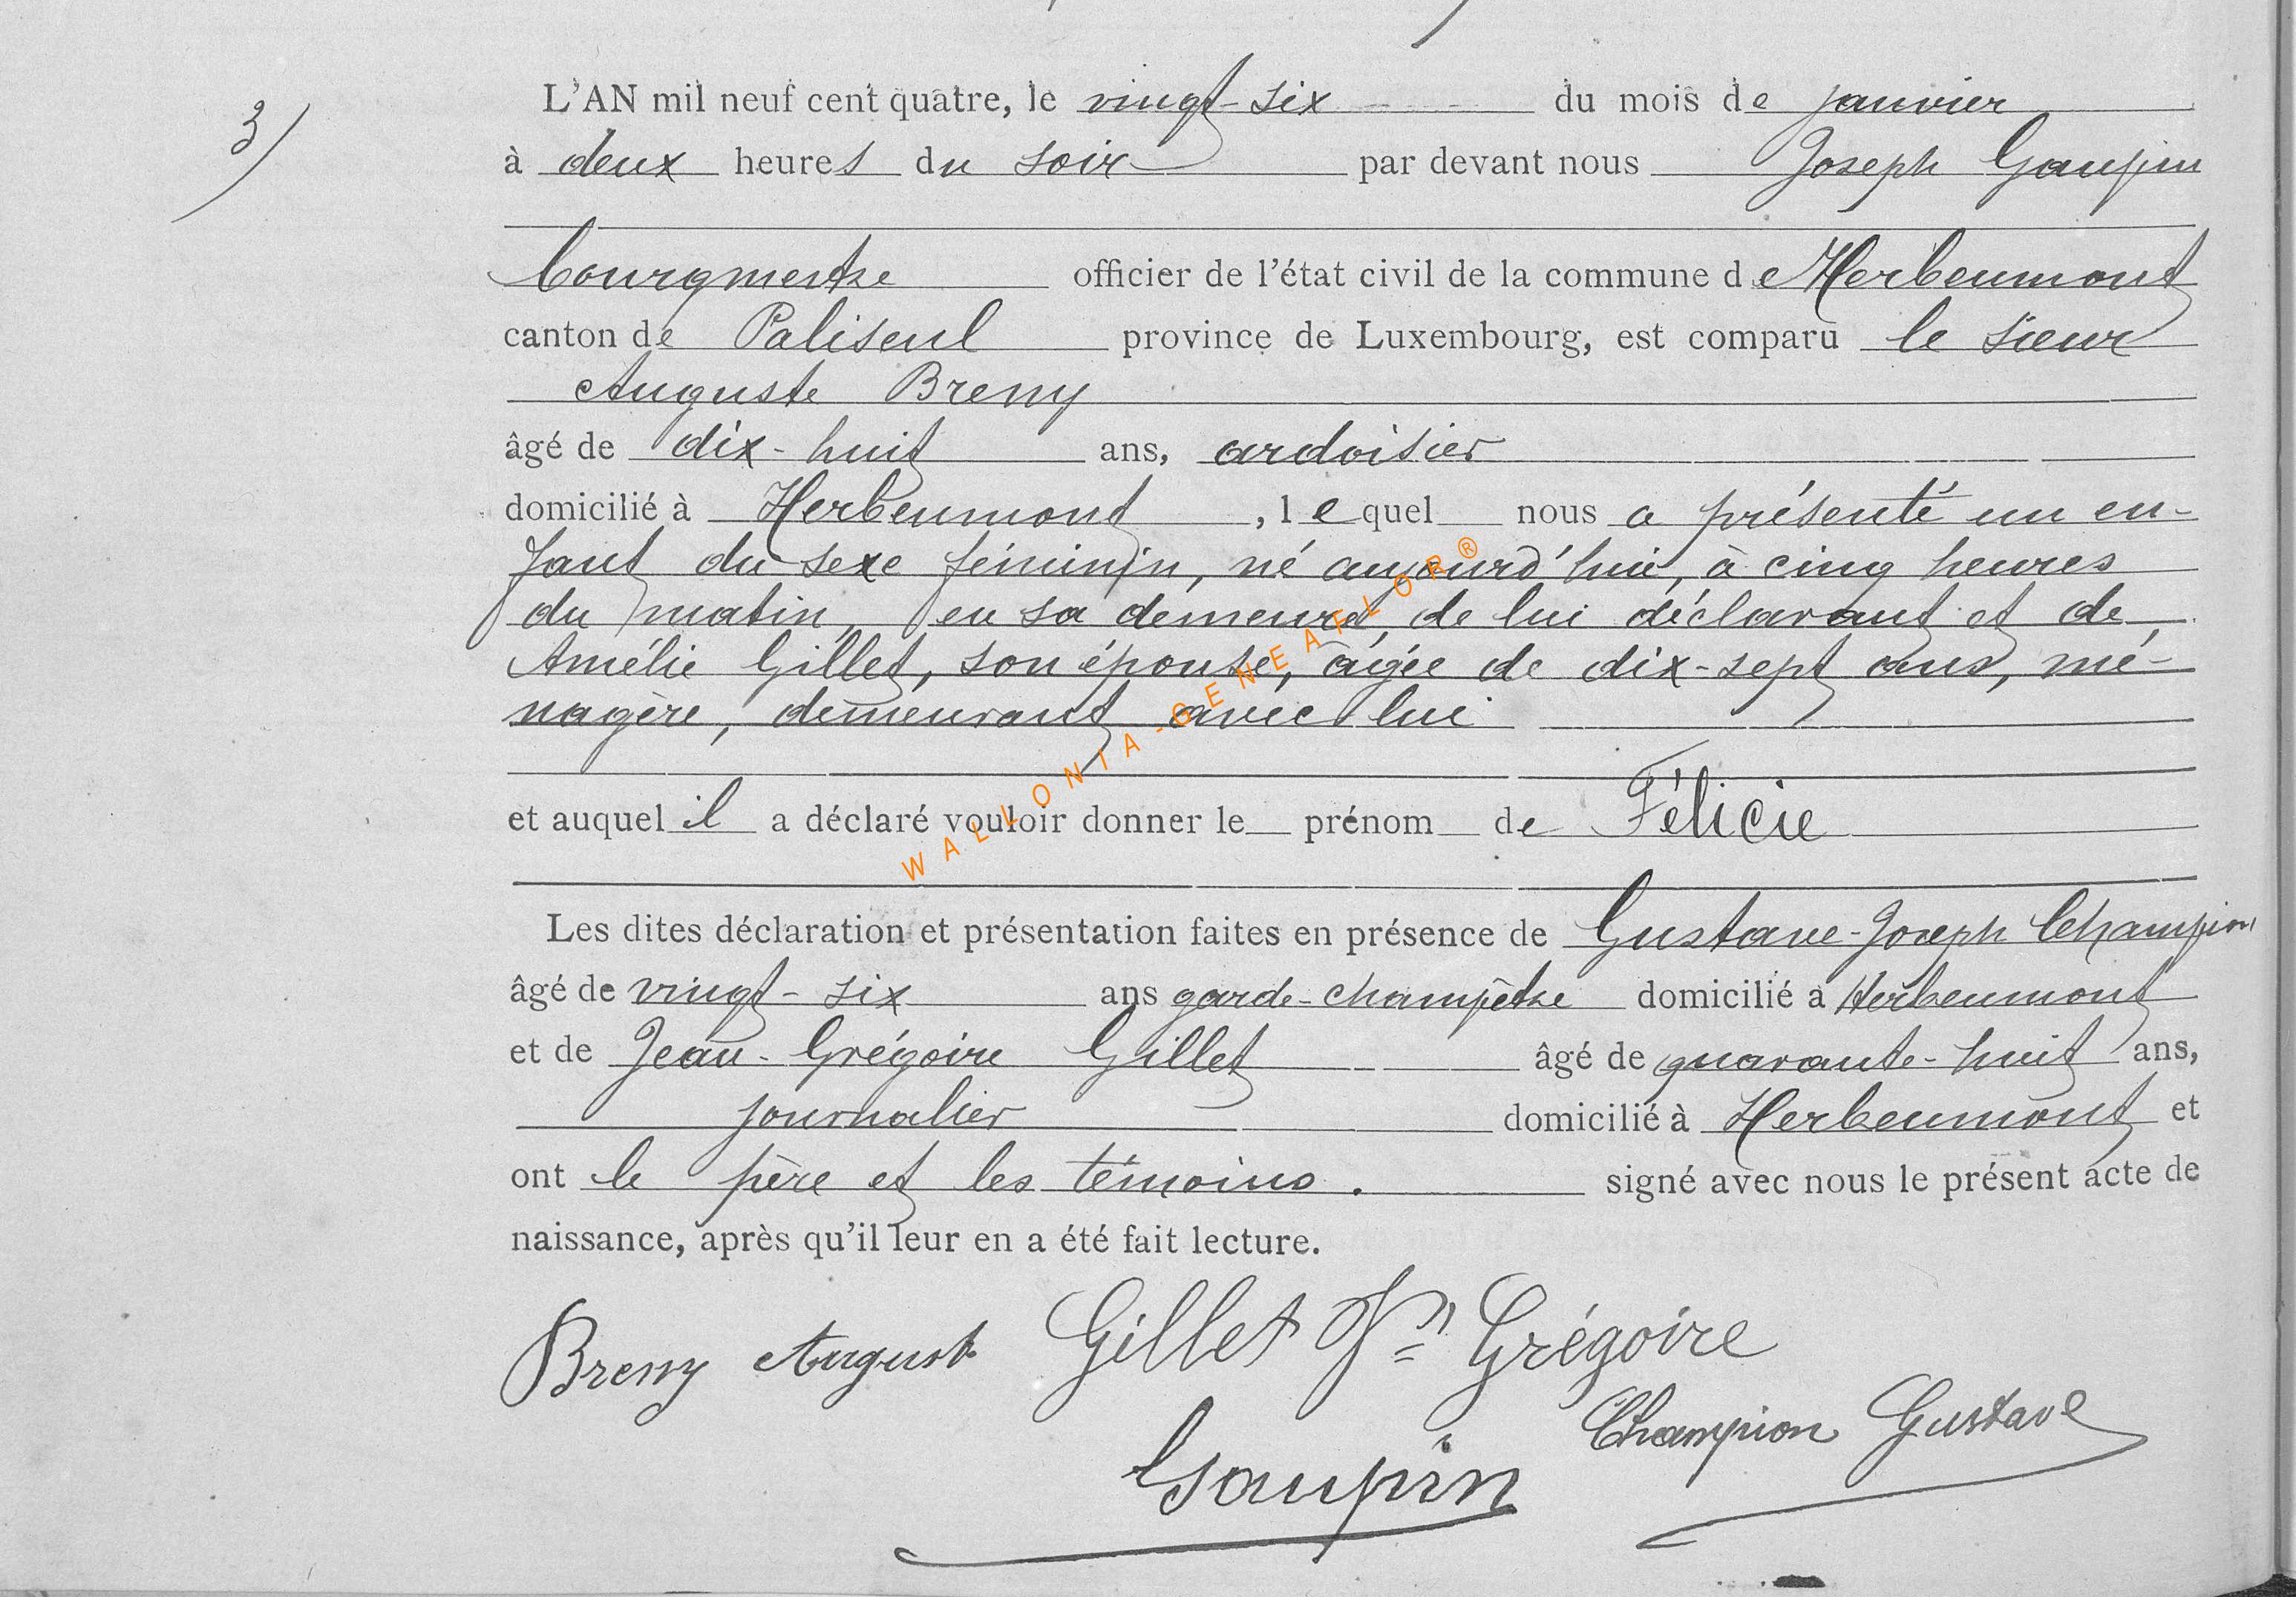 3)
L'AN mil neuf cent quatre, le vingt-six du mois de janvier
à deux heures du soir par devant nous Joseph Gaupin
bourgmestre officier de l'état civil de la commune de Herbeumont
canton de Paliseul province de Luxembourg, est comparu le sieur
Auguste Breny
âgé de dix-huit ans, ardoisier
domicilié à Herbeumont, lequel nous a présenté un en-
fant du sexe féminin, né aujourd'hui, à cinq heures
du matin, en sa demeure, de lui déclarant et de
Amélie Gillet, son épouse, âgée de dix-sept ans, mé-
nagère, demeurant avec lui
et auquel il a déclaré vouloir donner le prénom de Félicie
Les dites déclaration et présentation faites en présence de Gustave-Joseph Champion
âgé de vingt-six ans garde-champêtre domicilié à Herbeumont
et de Jean-Grégoire Gillet âgé de quarante-huit ans,
journalier domicilié à Herbeumont et
ont le père et les témoins. signé avec nous le présent acte de
naissance, après qu'il leur en a été fait lecture.
Breny August Gillet Jn Grégoire
Champion Gustave
Gaupin
WALLONIA-GENEAFLOR®